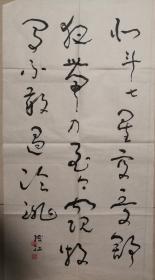 北斗七星高哥舒
夜带刀至今窥牧
马不敢过临洮